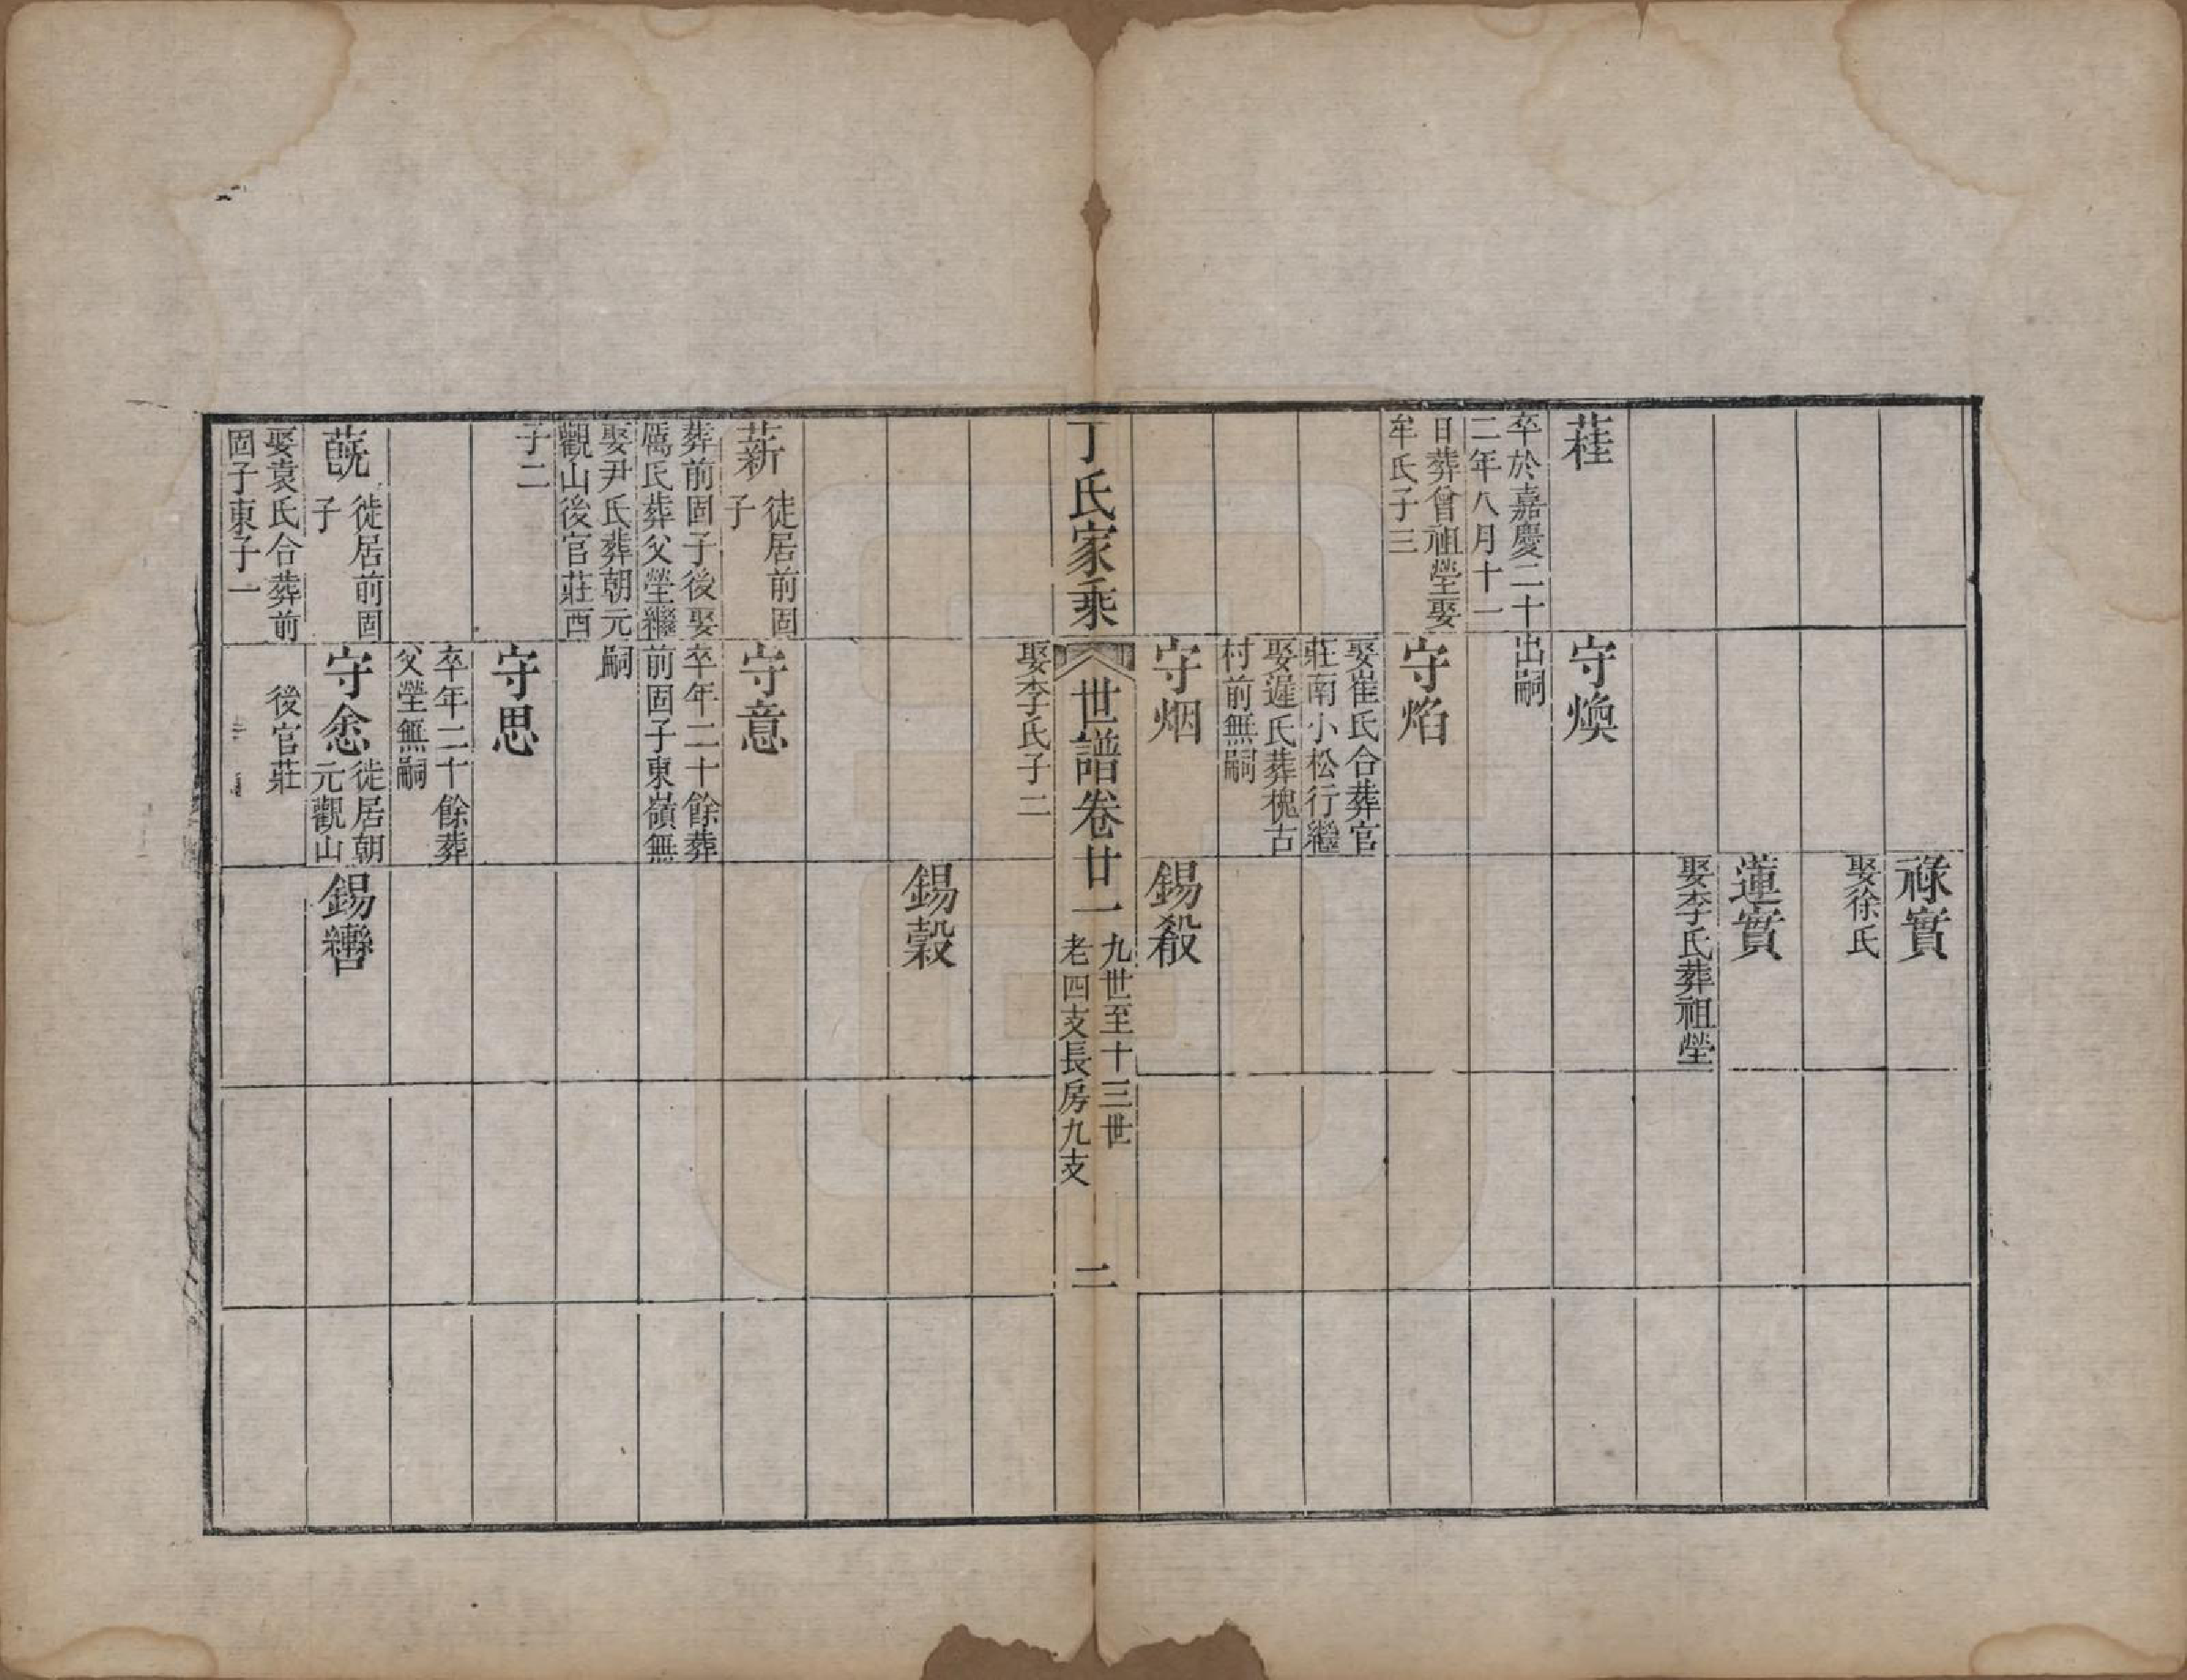 祿實
娶徐氏
蓮實
娶李氏葬祖塋
蓕
卒於嘉慶二十
二年八月十一
日葬曾祖塋娶
牟氏子三
守煥
出嗣
守焰
娶崔氏合葬官
莊南小松行繼
娶遲氏葬槐古
村前無嗣
守烟
錫
丁氏家乘
世譜卷廿一
九世至十三世
老四支長房九支
二
娶李氏子二
錫穀
薪
徙居前固
子
葬前固子後娶
厲氏葬父塋繼
娶尹氏葬朝元
觀山後官莊西
子二
守意
卒年二十餘葬
前固子東嶺無
嗣
守思
卒年二十餘葬
父塋無嗣
徙居前固
子
娶袁氏合葬前
固子東子一
守悆
徙居朝
元觀山
後官莊
錫